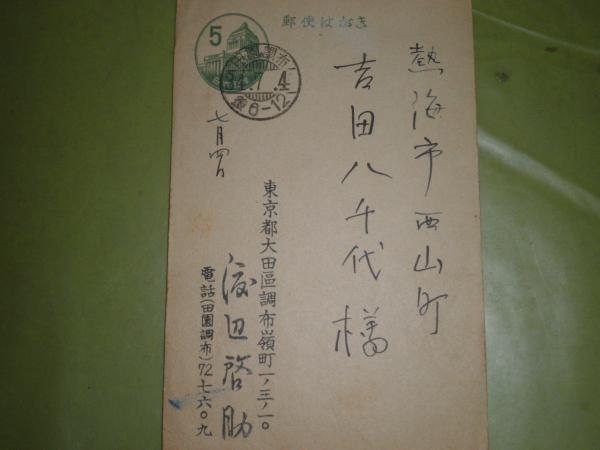 郵便はがき
5
田園調布
34.7.4
6-12
熱海市西山町
吉田八千代様
七月四日
東京都大田區調布嶺町一ノ三ノ一〇
渡辺啓助
電話(田園調布)72七六〇九